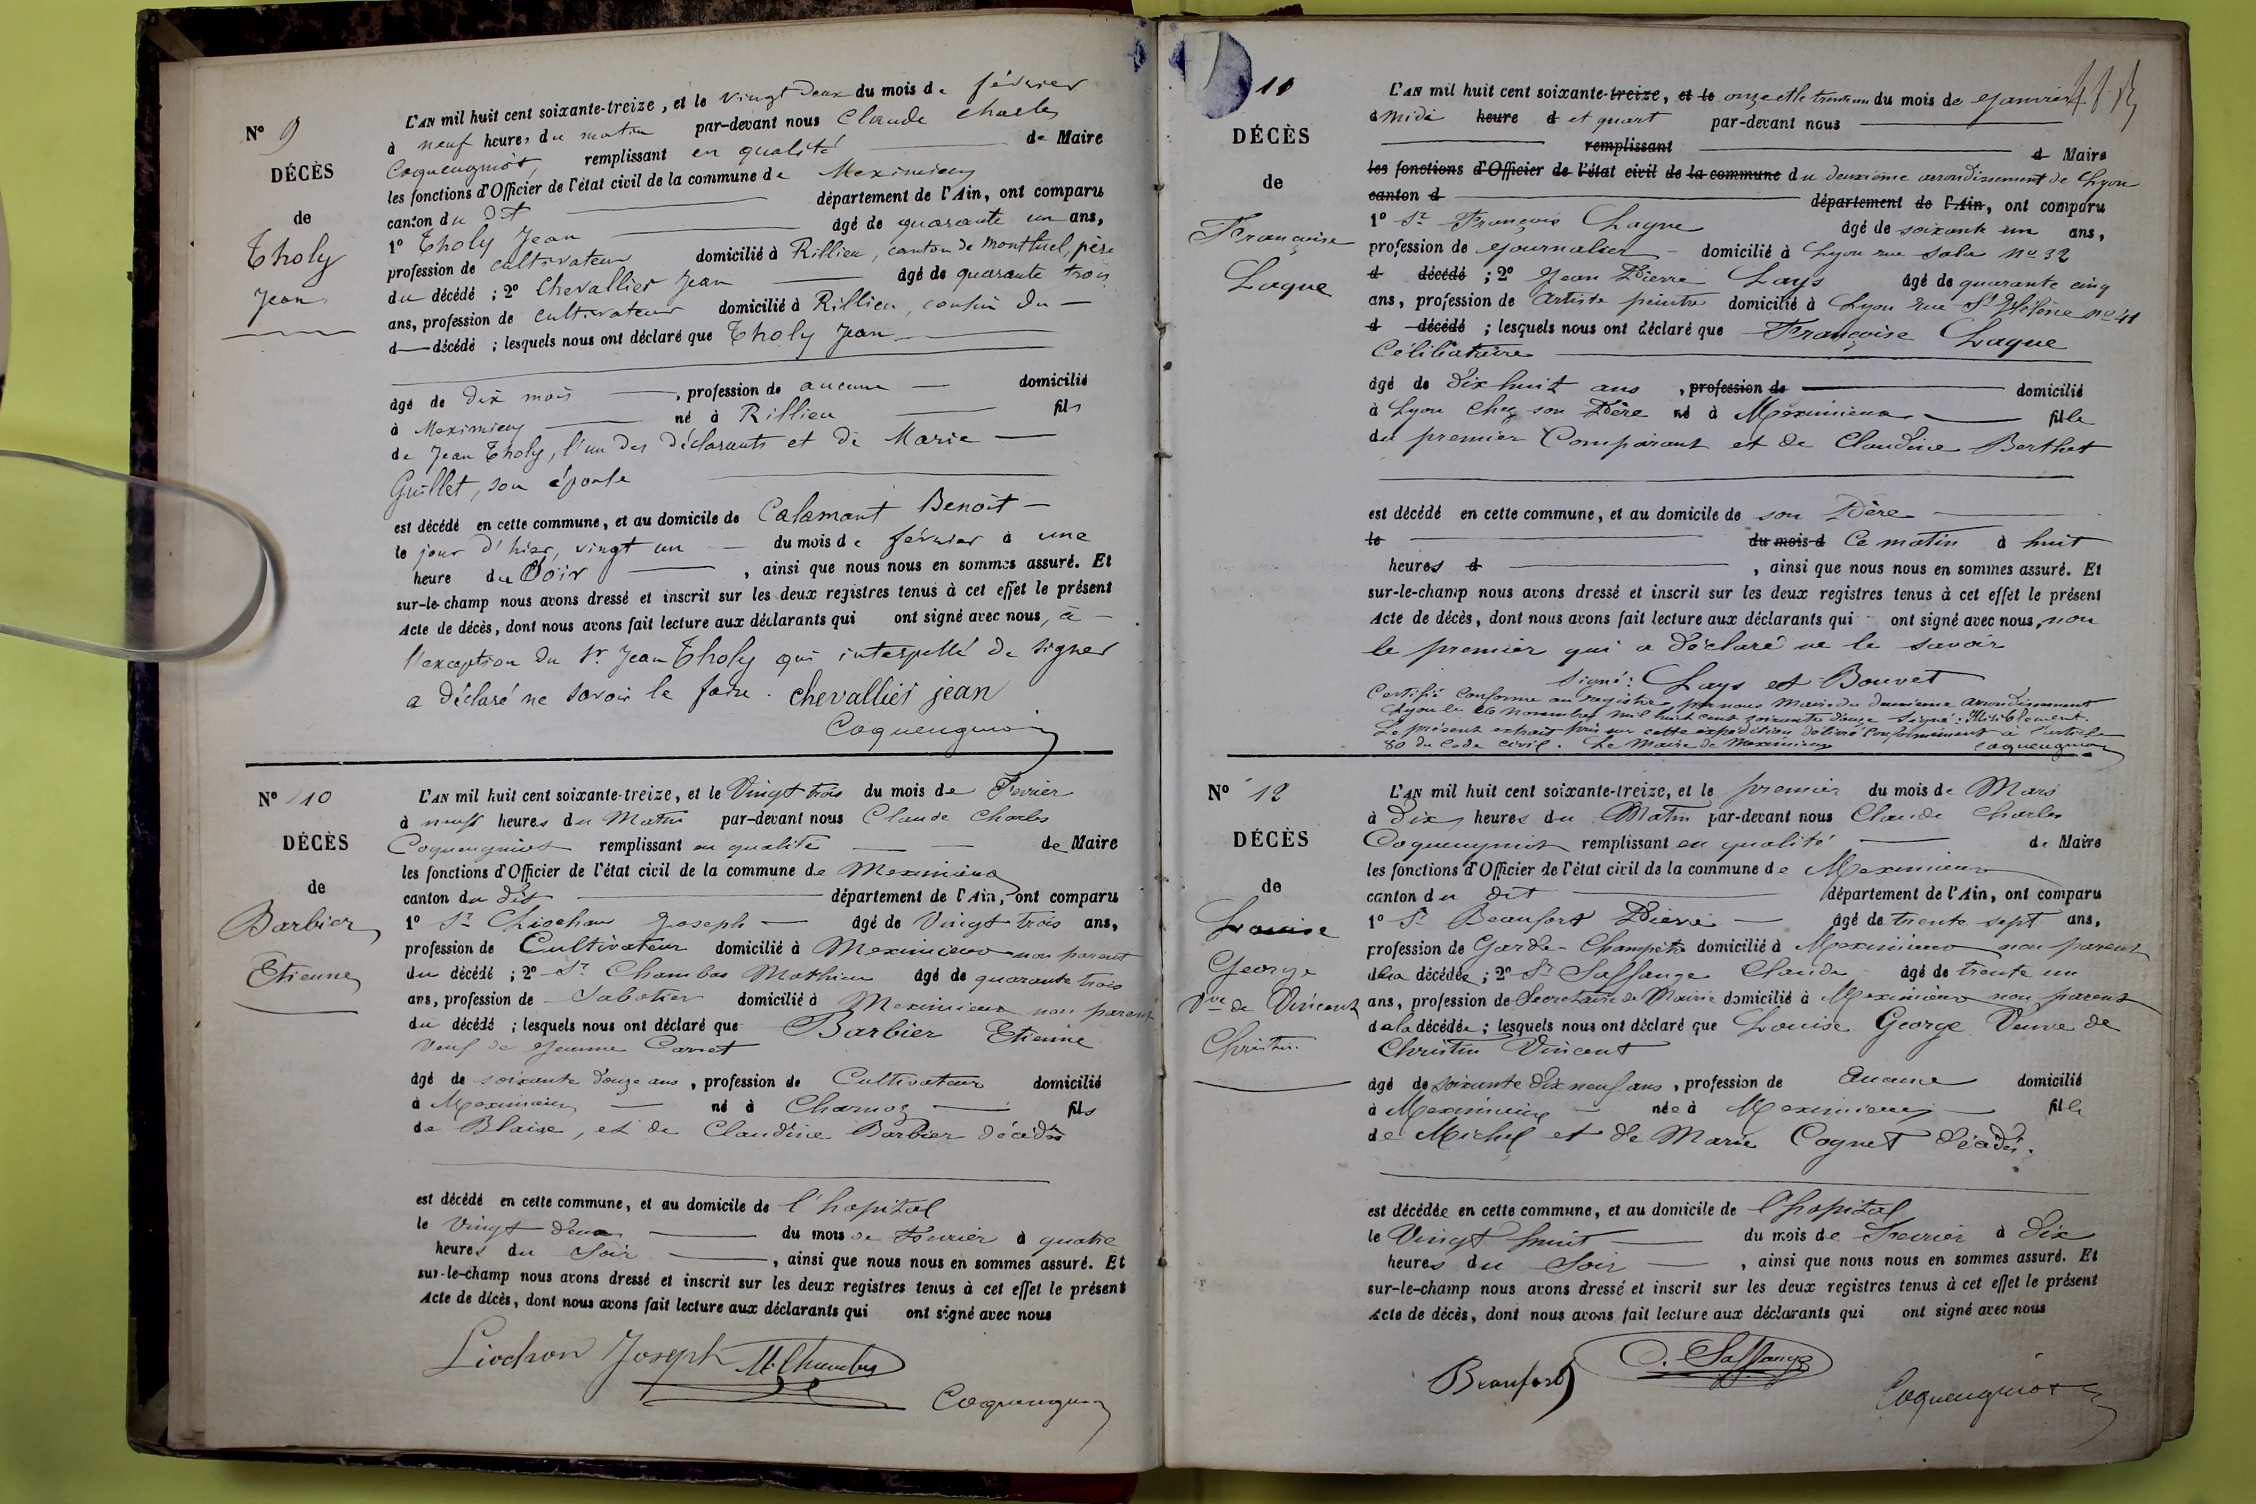 N° 9
DÉCÈS
de
Tholy
Jean
L'AN mil huit cent soixante-treize, et le vingt deux du mois de février
à neuf heures du matin par-devant nous Claude Charles
Coqueugniot, remplissant en qualité de Maire
les fonctions d'Officier de l'état civil de la commune de Meximieux
canton du dit département de l'Ain, ont comparu
1° Tholy Jean âgé de quarante un ans,
profession de cultivateur domicilié à Rillieu, canton de Montluel, père
du décédé ; 2° Chevallier Jean âgé de quarante trois
ans, profession de cultivateur domicilié à Rillieu, cousin du
d décédé ; lesquels nous ont déclaré que Tholy Jean
âgé de dix mois, profession de aucune domicilié
à Meximieux né à Rillieu fils
de Jean Tholy, l'un des déclarants et de Marie
Guillet, son épouse
est décédé en cette commune, et au domicile de Calamant Benoît
le jour d'hier, vingt un du mois de février à une
heure du soir, ainsi que nous nous en sommes assuré. Et
sur-le-champ nous avons dressé et inscrit sur les deux registres tenus à cet effet le présent
Acte de décès, dont nous avons fait lecture aux déclarants qui ont signé avec nous, à
l'exception du Sr Jean Tholy qui interpellé de signer
a déclaré ne savoir le faire. chevallier jean
Coqueugniot
N° 10
DÉCÈS
de
Barbier
Etienne
L'AN mil huit cent soixante-treize, et le Vingt trois du mois de Fevrier
à neuf heures du Matin par-devant nous Claude Charles
Coqueugniot remplissant en qualité de Maire
les fonctions d'Officier de l'état civil de la commune de Meximieux
canton du dit département de l'Ain, ont comparu
1° Sr Liochon Joseph âgé de Vingt trois ans,
profession de Cultivateur domicilié à Meximieux non parent
du décédé ; 2° Sr Chambas Mathieu âgé de quarante trois
ans, profession de Sabotier domicilié à Meximieux non parent
du décédé ; lesquels nous ont déclaré que Barbier Etienne
Veuf de Jeanne Carret
âgé de soixante douze ans, profession de Cultivateur domicilié
à Meximieux né à Charnoz fils
de Blaise, et de Claudine Barbier décédés
est décédé en cette commune, et au domicile de l'hopital
le Vingt deux du mois de Fevrier à quatre
heures du Soir, ainsi que nous nous en sommes assuré. Et
sur-le-champ nous avons dressé et inscrit sur les deux registres tenus à cet effet le présent
Acte de décès, dont nous avons fait lecture aux déclarants qui ont signé avec nous
Liochon Joseph M. Chambas
Coqueugniot
11
DÉCÈS
de
Françoise
Laque
L'AN mil huit cent soixante-treize, et le onze et le trente un du mois de Janvier
à Midi heure d et quart par-devant nous
remplissant d Maire
les fonctions d'Officier de l'état civil de la commune du deuxième arrondissement de Lyon
canton d département de l'Ain, ont comparu
1° Sr François Laque âgé de soixante un ans,
profession de Journalier domicilié à Lyon rue Sala No 32
d décédé ; 2° Jean Pierre Lays âgé de quarante cinq
ans, profession de Artiste peintre domicilié à Lyon rue Ste Hélène No 41
d décédé ; lesquels nous ont déclaré que Françoise Laque
Célibataire
âgé de dix huit ans, profession de domicilié
à Lyon chez son Père né à Meximieux fille
du premier Comparant et de Claudine Berthet
est décédé en cette commune, et au domicile de son Père
le du mois d Ce matin à huit
heures d, ainsi que nous nous en sommes assuré. Et
sur-le-champ nous avons dressé et inscrit sur les deux registres tenus à cet effet le présent
Acte de décès, dont nous avons fait lecture aux déclarants qui ont signé avec nous, non
le premier qui a déclaré ne le savoir
Signé : Lays et Bouvet
Certifié Conforme au registre par nous Maire du deuxième arrondissement
Lyon le 26 Novembre mil huit cent soixante douze Signé : Illisiblement.
Le présent extrait pris sur cette expédition délivré Conformément à l'article
80 du Code Civil. Le Maire de Meximieux Coqueugniot
N° 12
DÉCÈS
de
Louise
George
Vve de Vincent
Christin
L'AN mil huit cent soixante-treize, et le premier du mois de Mars
à Dix heures du Matin par-devant nous Claude Charles
Coqueugniot remplissant en qualité de Maire
les fonctions d'Officier de l'état civil de la commune de Meximieux
canton du dit département de l'Ain, ont comparu
1° Sr Beaufort Pierre âgé de trente sept ans,
profession de Garde-Champêtre domicilié à Meximieux non parent
de la décédée ; 2° Sr Saffange Claude âgé de trente un
ans, profession de Secretaire de Mairie domicilié à Meximieux non parent
de la décédée ; lesquels nous ont déclaré que Louise George Veuve de
Christin Vincent
âgé de soixante dix neuf ans, profession de Aucune domicilié
à Meximieux née à Meximieux fille
de Michel et de Marie Cognet décédés.
est décédée en cette commune, et au domicile de l'hopital
le Vingt huit du mois de Fevrier à Dix
heures du Soir, ainsi que nous nous en sommes assuré. Et
sur-le-champ nous avons dressé et inscrit sur les deux registres tenus à cet effet le présent
Acte de décès, dont nous avons fait lecture aux déclarants qui ont signé avec nous
Beaufort C. Saffange
Coqueugniot